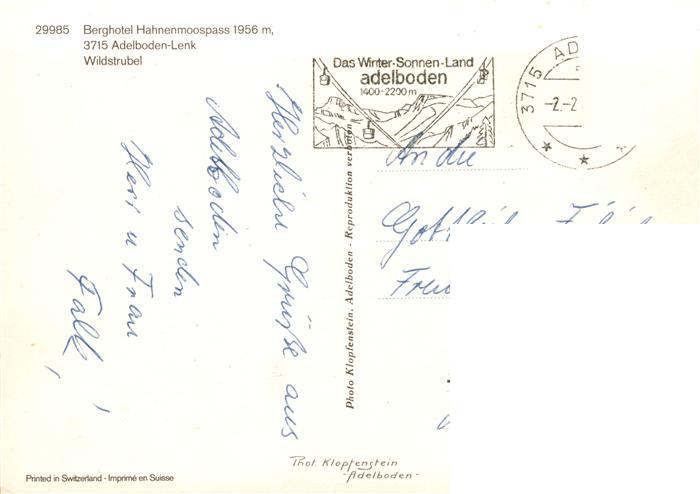 29985 Berghotel Hahnenmoospass 1956 m,
3715 Adelboden-Lenk
Wildstrubel
Das Winter-Sonnen-Land
adelboden
1400-2200 m
3715 AD
-2.-2
Herzliche Grüße aus
Adelboden
senden
Heri u Frau
Falk,
An die
Photo Klopfenstein, Adelboden - Reproduktion verboten
Phot. Klopfenstein
-Adelboden-
Printed in Switzerland - Imprimé en Suisse